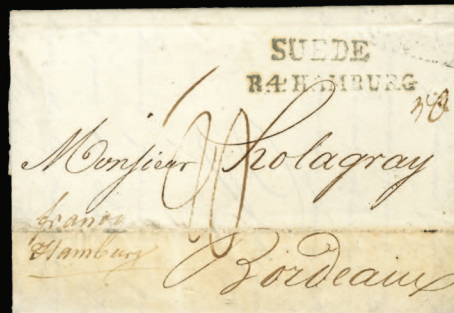 SUEDE
R.4. HAMBURG
Monsieur Holagray
franco
Hamburg
Bordeaux